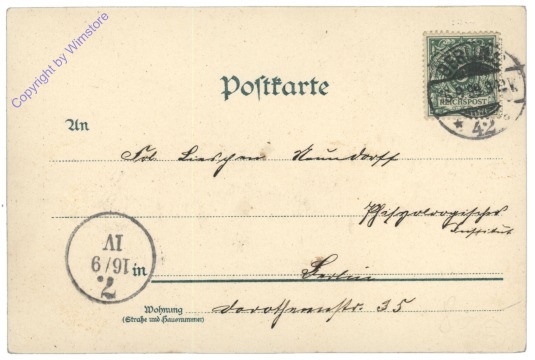 Copyright by Wimstore
Postkarte
BERLIN
REICHSPOST
* 42
An
Frl. Lieschen Neundorff
Physiologisches
Institut
in Berlin
Wohnung
(Straße und Hausnummer)
Dorotheenstr. 35
IV
16/9
7.